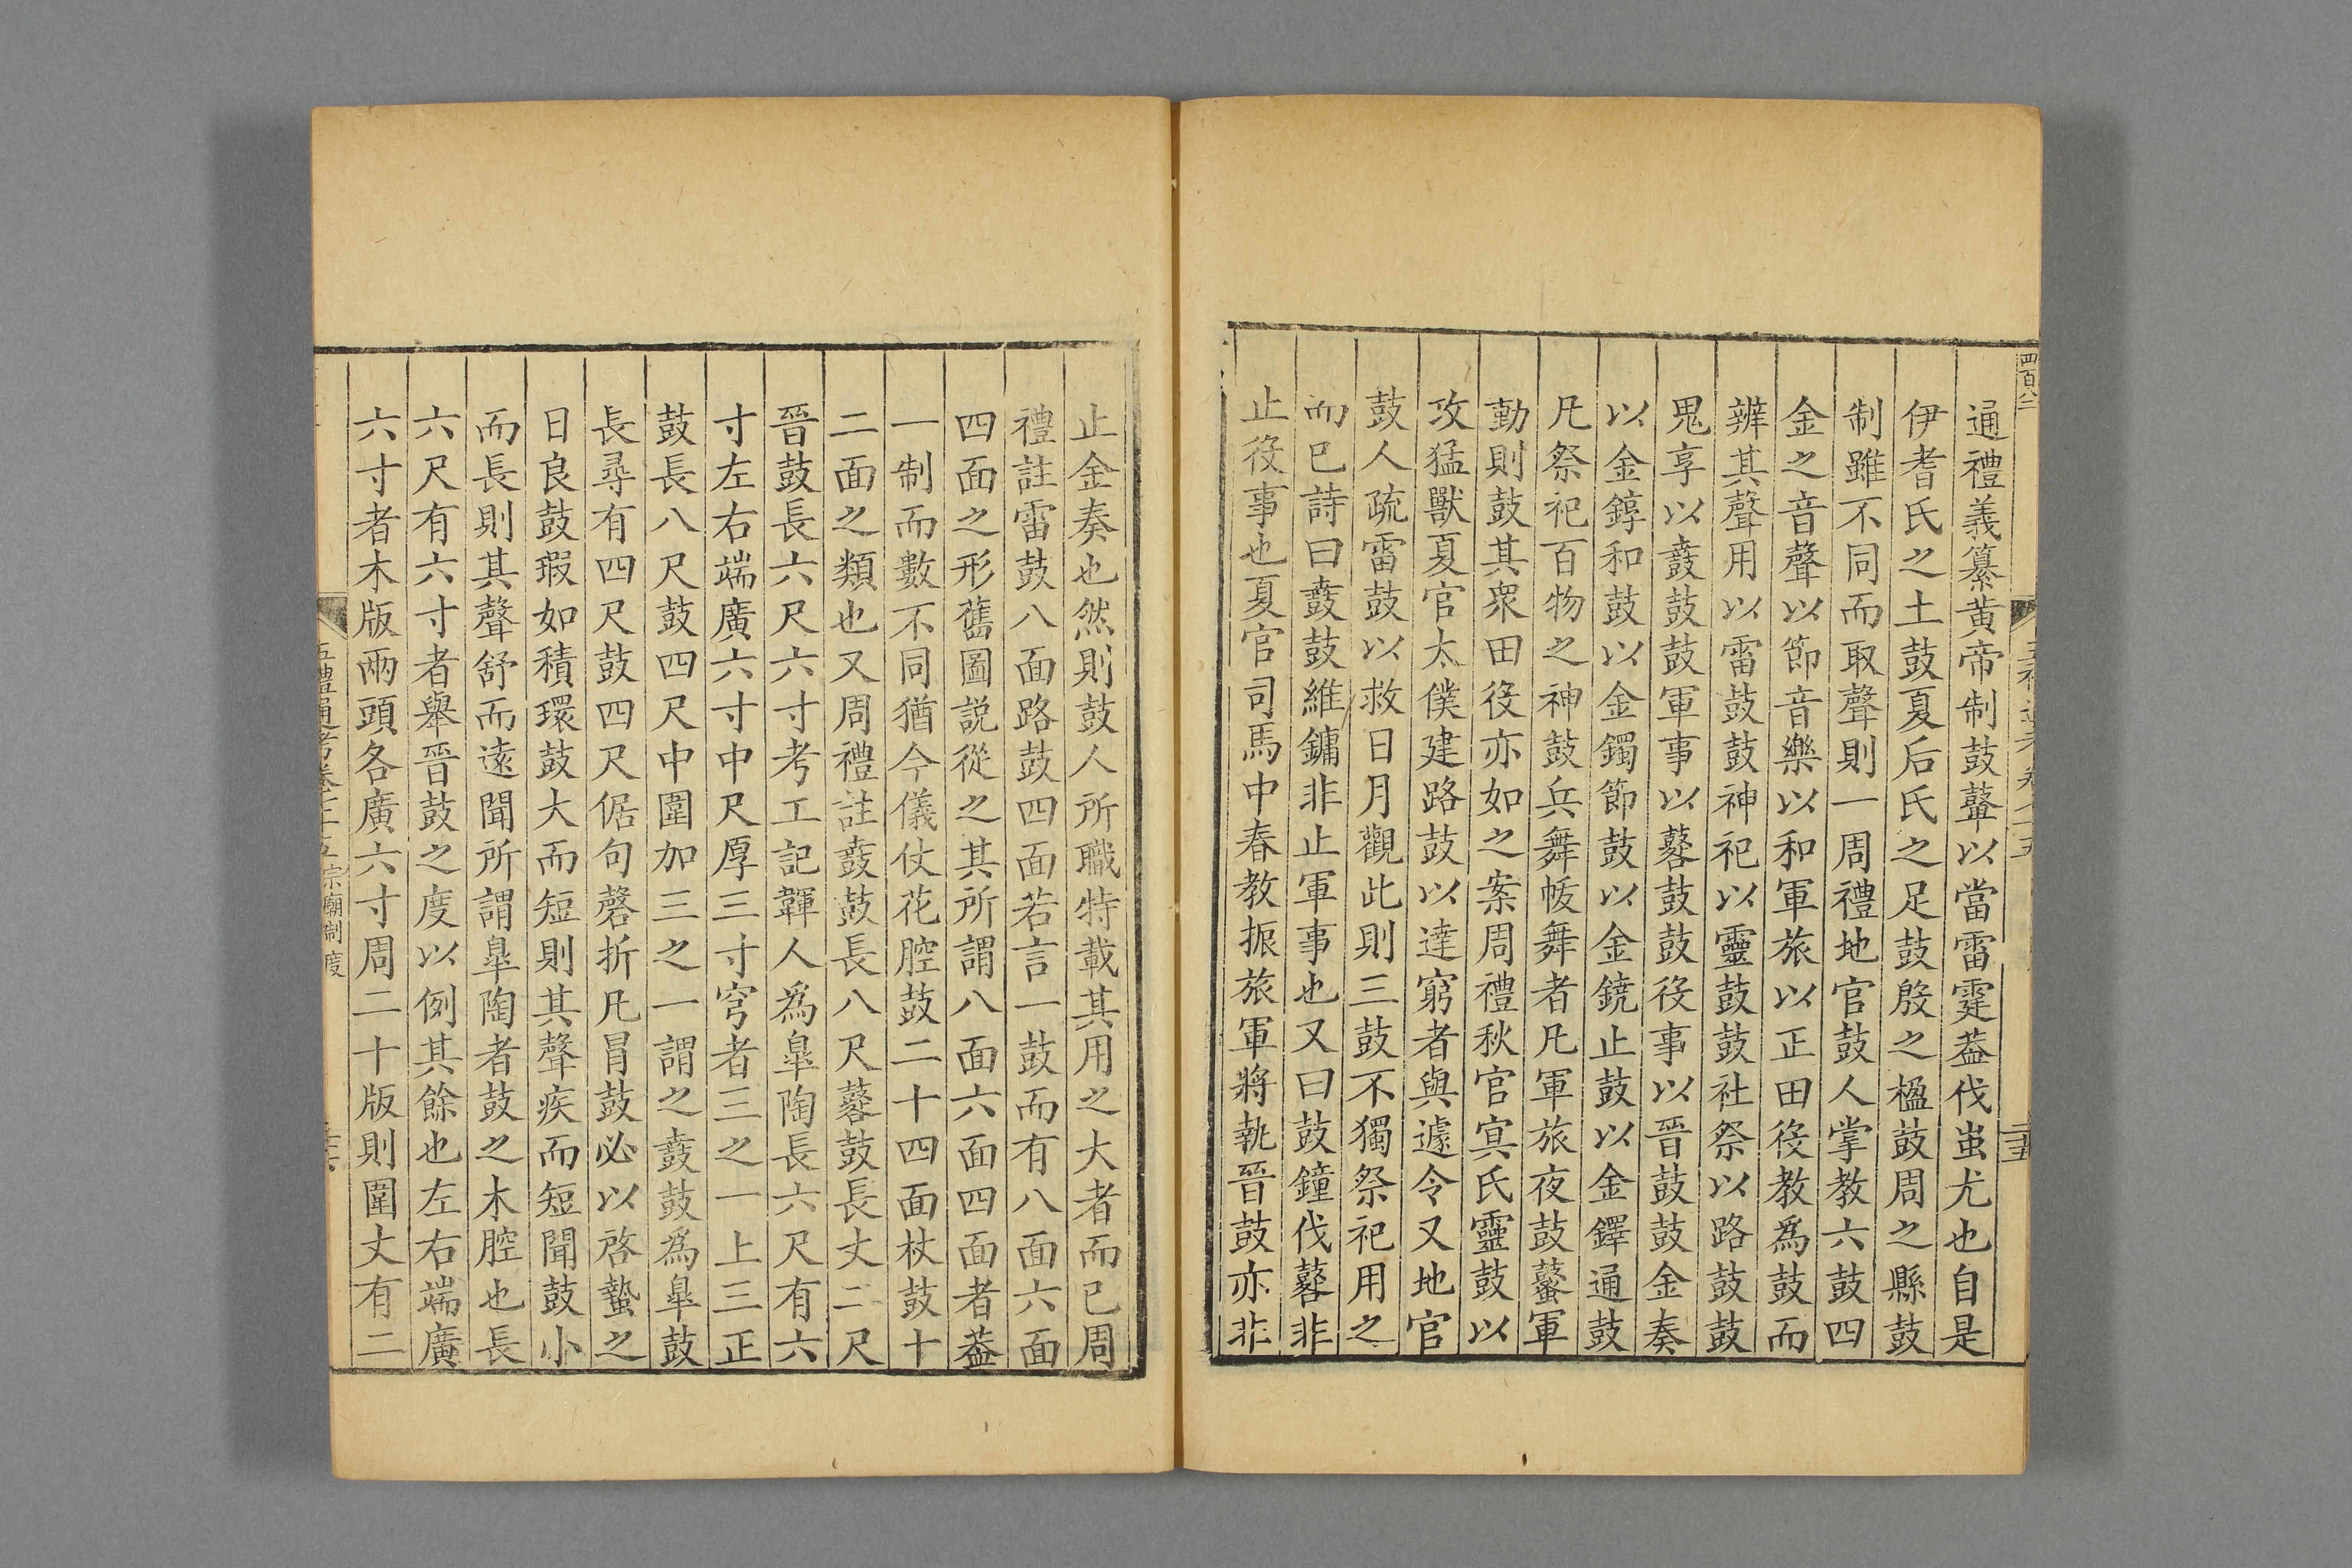 四百八二
通禮義纂黃帝制鼓鼙以當雷霆葢伐蚩尤也自是
伊耆氏之土鼓夏后氏之足鼓殷之楹鼓周之縣鼓
制雖不同而取聲則一周禮地官鼓人掌教六鼓四
金之音聲以節音樂以和軍旅以正田役教爲鼓而
辨其聲用以雷鼓鼓神祀以靈鼓鼓社祭以路鼓鼓
鬼享以鼖鼓鼓軍事以鼛鼓鼓役事以晉鼓鼓金奏
以金錞和鼓以金鐲節鼓以金鐃止鼓以金鐸通鼓
凡祭祀百物之神鼓兵舞帗舞者凡軍旅夜鼓鼜軍
動則鼓其衆田役亦如之案周禮秋官冥氏靈鼓以
攻猛獸夏官太僕建路鼓以達窮者與遽令又地官
鼓人疏雷鼓以救日月觀此則三鼓不獨祭祀用之
而已詩曰鼖鼓維鏞非止軍事也又曰鼓鐘伐鼛非
止役事也夏官司馬中春教振旅軍將執晉鼓亦非
止金奏也然則鼓人所職特載其用之大者而已周
禮註雷鼓八面路鼓四面若言一鼓而有八面六面
四面之形舊圖説從之其所謂八面六面四面者葢
一制而數不同猶今儀仗花腔鼓二十四面杖鼓十
二面之類也又周禮註鼖鼓長八尺鼛鼓長丈二尺
晉鼓長六尺六寸考工記韗人爲臯陶長六尺有六
寸左右端廣六寸中尺厚三寸穹者三之一上三正
鼓長八尺鼓四尺中圍加三之一謂之鼖鼓爲臯鼓
長尋有四尺鼓四尺倨句磬折凡冒鼓必以啓蟄之
日良鼓瑕如積環鼓大而短則其聲疾而短聞鼓小
而長則其聲舒而遠聞所謂臯陶者鼓之木腔也長
六尺有六寸者舉晉鼓之度以例其餘也左右端廣
六寸者木版兩頭各廣六寸周二十版則圍丈有二
五禮通考卷 宗廟制度